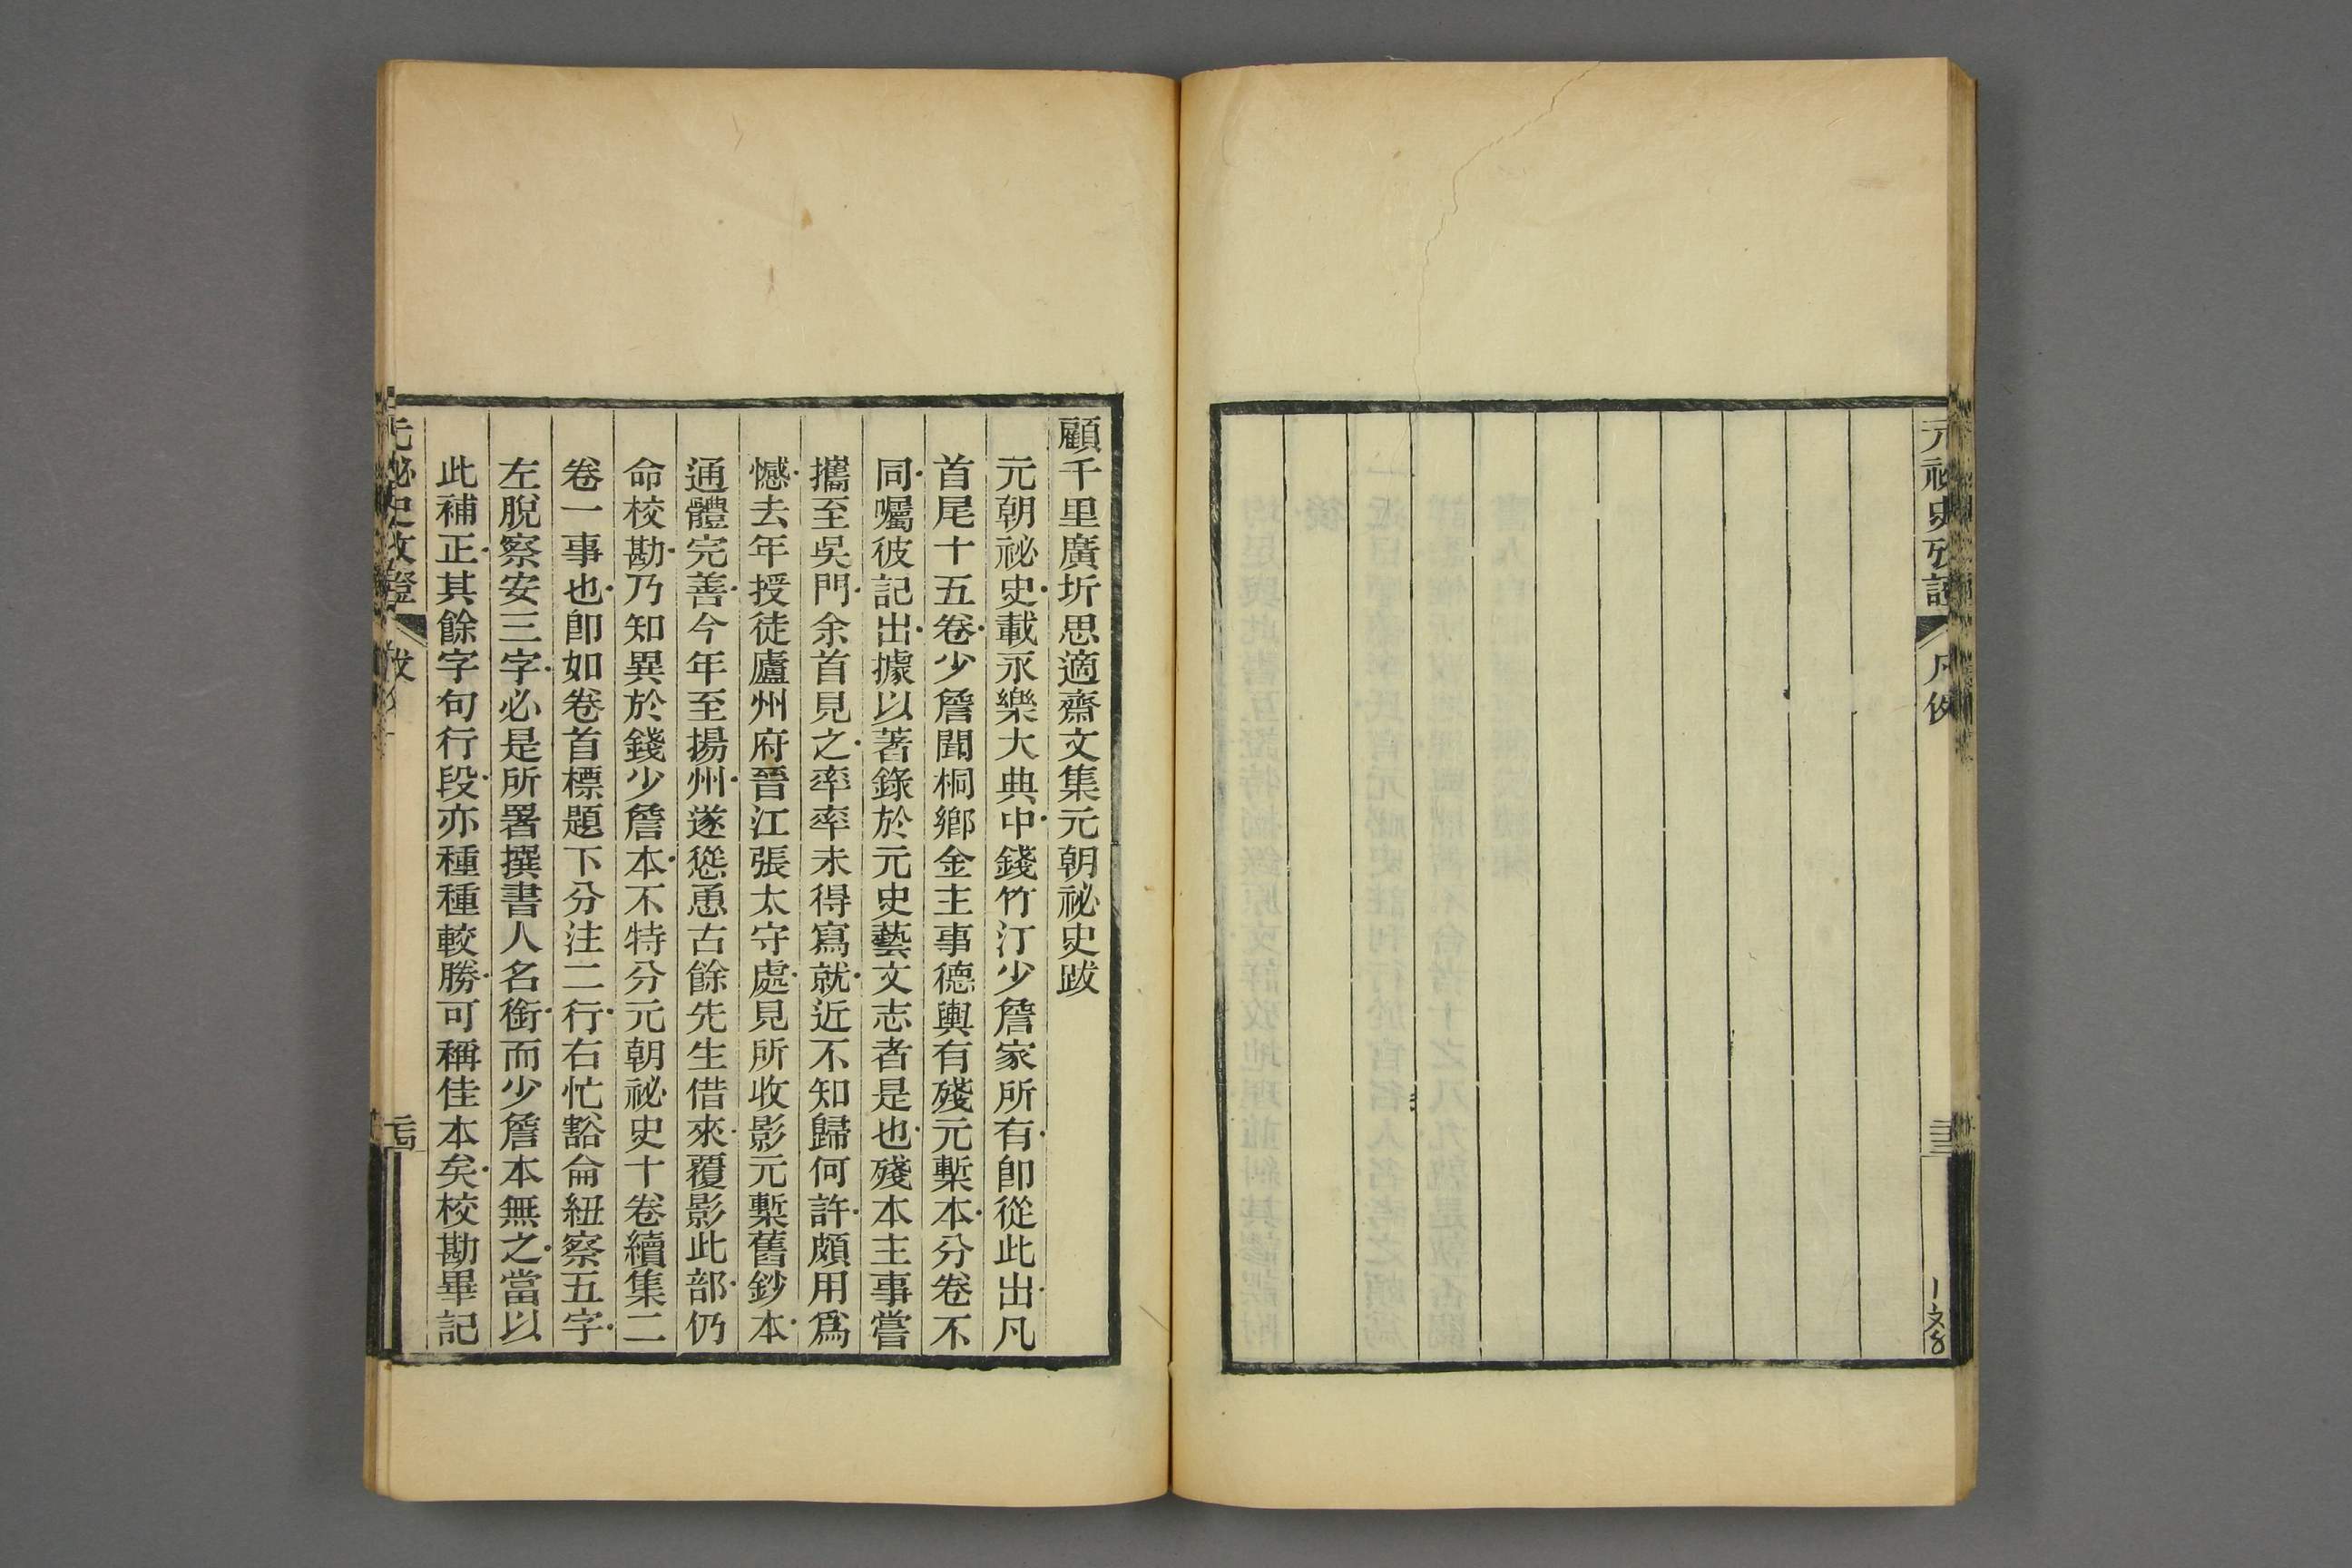 元祕史攷證
凡例
三三
文
顧千里廣圻思適齋文集元朝祕史跋
元朝祕史載永樂大典中錢竹汀少詹家所有即從此出凡
首尾十五卷少詹聞桐鄉金主事德輿有殘元槧本分卷不
同囑彼記出據以著錄於元史藝文志者是也殘本主事嘗
攜至吳門余首見之率率未得寫就近不知歸何許頗用爲
憾去年授徒廬州府晉江張太守處見所收影元槧舊鈔本
通體完善今年至揚州遂慫恿古餘先生借來覆影此部仍
命校勘乃知異於錢少詹本不特分元朝祕史十卷續集二
卷一事也即如卷首標題下分注二行右忙豁侖紐察五字
左脫察安三字必是所署撰書人名銜而少詹本無之當以
此補正其餘字句行段亦種種較勝可稱佳本矣校勘畢記
元祕史攷證
跋